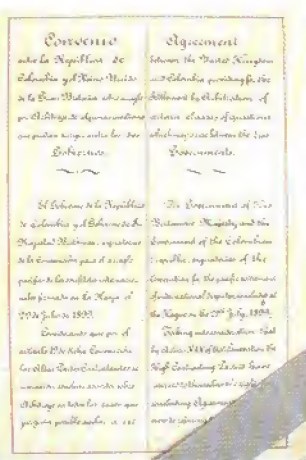 Convenio
entre la República de
Colombia y el Reino Unido
de la Gran Bretaña sobre arreglo
por Arbitraje de algunas cuestiones
que puedan surgir entre los dos
Gobiernos.
El Gobierno de la República
de Colombia y el Gobierno de Su
Majestad Británica, signatarios
de la Convención para el arreglo
pacífico de los conflictos interna-
cionales firmada en La Haya el
29 de Julio de 1899.
Considerando que por el
artículo 19 de dicha Convención
las Altas Partes Contratantes se
Arbitraje en todos los casos que
Agreement
between the United Kingdom
and Colombia providing for the
settlement by Arbitration of
certain classes of questions
which may arise between the two
Governments.
The Government of His
Britannic Majesty and the
Government of the Colombian
Republic, signatories of the
Convention for the pacific settlement
of international disputes, concluded at
the Hague on the 29th July, 1899.
Taking into consideration that
by Article XIX of this Convention the
High Contracting Parties have
concluding Agreements